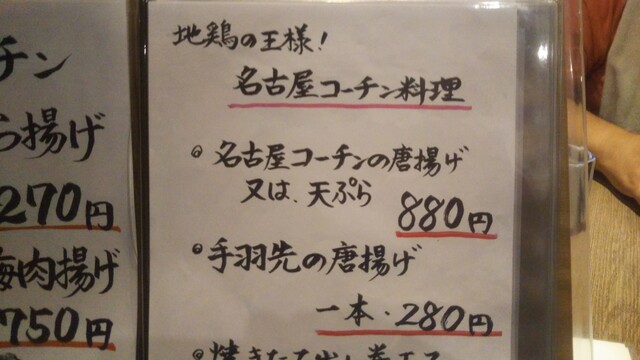 チン
ら揚げ
270円
梅肉揚げ
750円
地鶏の王様!
名古屋コーチン料理
名古屋コーチンの唐揚げ
又は、天ぷら 880円
手羽先の唐揚げ
一本・280円